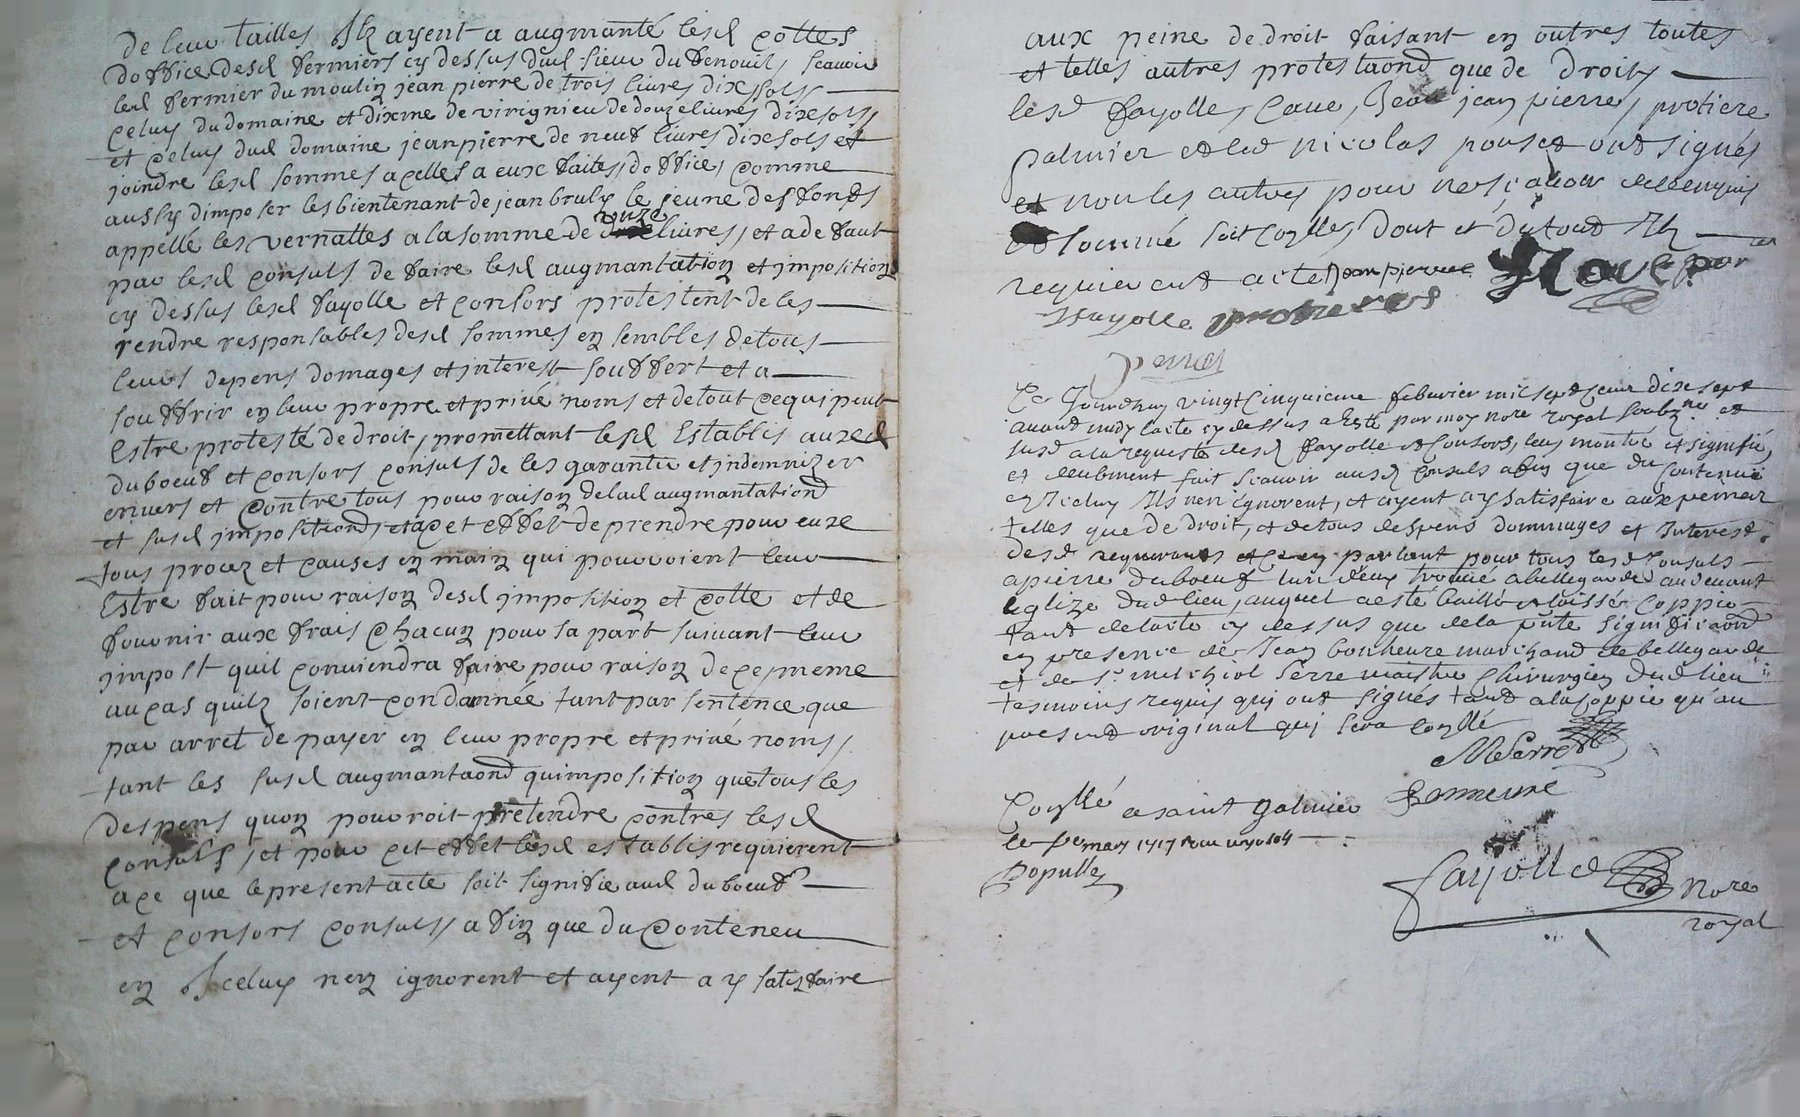 de leur tailles Ilz ayent a augmanté lesd cottes
doffice desd fermiers cy dessus dud sieur du fenouil, scavoir
led fermier du moulin jean pierre de trois livres dix sols
celuy du domaine et dixme de virignieu de douze livres dix sols
et celuy dud domaine jean pierre de neuf livres dix sols et
joindre lesd sommes a celles a eux faites, doffice, comme
aussy dimposer les bientenant de jean bruly le jeune des fonds
appellé les vernattes a la somme de onze livres, et a defaut
par lesd consuls de faire lesd augmantation et imposition
cy dessus lesd fayolle et consors protestent de les
rendre responsables desd sommes en sembles de tous
leurs depens domages et interest souffert et a
souffrir en leur propre et privé noms et de tout ce qui peut
Estre protesté de droit, promettant lesd Establis auxd
duboeuf et consors consuls de les garantir et indemnizer
envers et contre tous pour raison de lad augmantation
et susd imposition, et a cet effet de prendre pour eux
tous procez et causes en main qui pouroient leur
Estre fait pour raison desd imposition et cotte et de
fournir aux frais chacun pour sa part suivant leur
impost quil conviendra faire pour raison de ce, meme
au cas quilz soient condamnée tant par sentence que
par arret de payer en leur propre et privé noms,
tant les susd augmantaond quimposition que tous les
despens quon pouroit pretendre contres lesd
consuls, et pour cet effet lesd establis requierent
a ce que le present acte soit signifie aud duboeuf
et consors consuls, afin que du Conteneu
en Iceluy nen ignorent et ayent a y satisfaire
aux peine de droit faisant en outres toutes
et telles autres protestaond que de droit
lesd fayolle, Cave, Jean jean pierre, protiere
palmier et led nicolas ponset ont signés
et non les autres pour ne sçavoir de ce enquis
sommé soit coylles, dont et du tout Ilz
requierent acte Jean pierre Cave
ffayolle protieres
Ce Jourdhuy vingt Cinquieme febvrier mil sept cent dix sept
avant midy lacte cy dessus a Esté par moy nore royal soubzne et
susd a la requeste desd fayolle et Consors, leus montré et signifié,
et deubment fait scavoir ausd Consuls afin que du contenu
en Iceluy Ils nen ignorent, et ayent a y satisfaire aux peines
telles que de droit, et de tous despens dommages et Interest
desd requerants et ce en parlant pour tous lesd Consuls
a pierre duboeuf lun deux trouvé a bellegarde au devant
leglize dud lieu, auquel a esté baillé et laissé Coppie
tant de lacte cy dessus que de la pnte signiffication
en presence de Jean bonheure marchand de bellegarde
et de sr melchiol serre maistre Chirurgien dud lieu
tesmoins requis qui ont signés tant a la Coppie qu'au
present original qui sera Coyllé
MSerre
Bonneure
Coyllé a saint Galmier
le per mars 1717 Receu
Populle
fayolle nore
royal